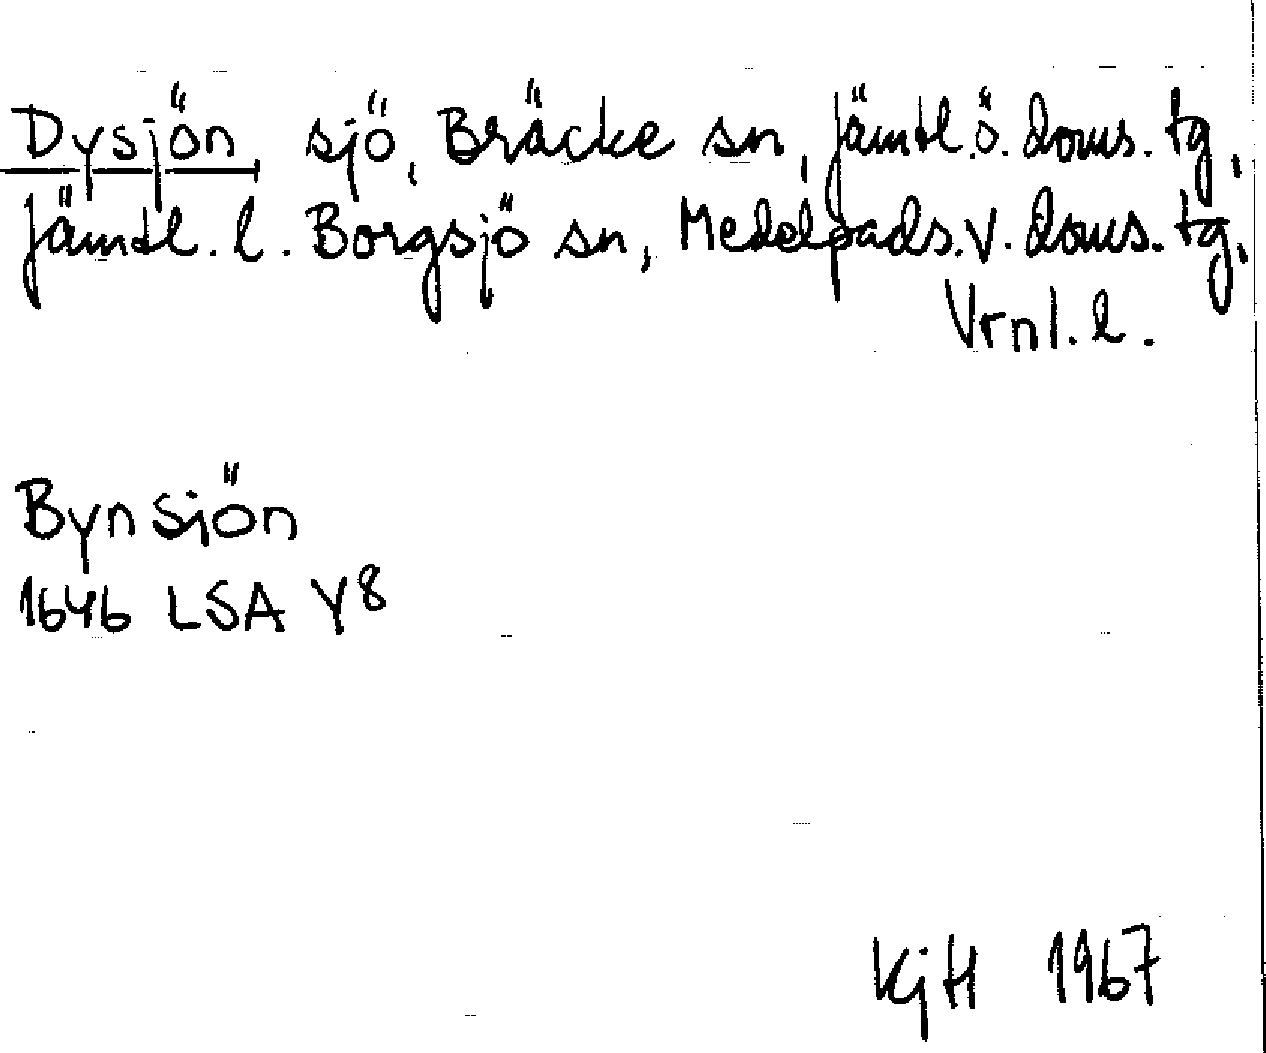 Dysjön, sjö, Bräcke sn, Jämtl.ö. doms. tg,
Jämtl. l. Borgsjö sn, Medelpads. v. doms. tg,
Vrnl. l.
Bynsjön
1646 LSA Y8
KjH 1967